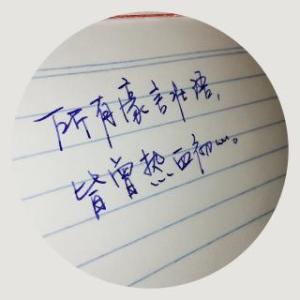 所有豪言壮语，
皆曾热血初心。